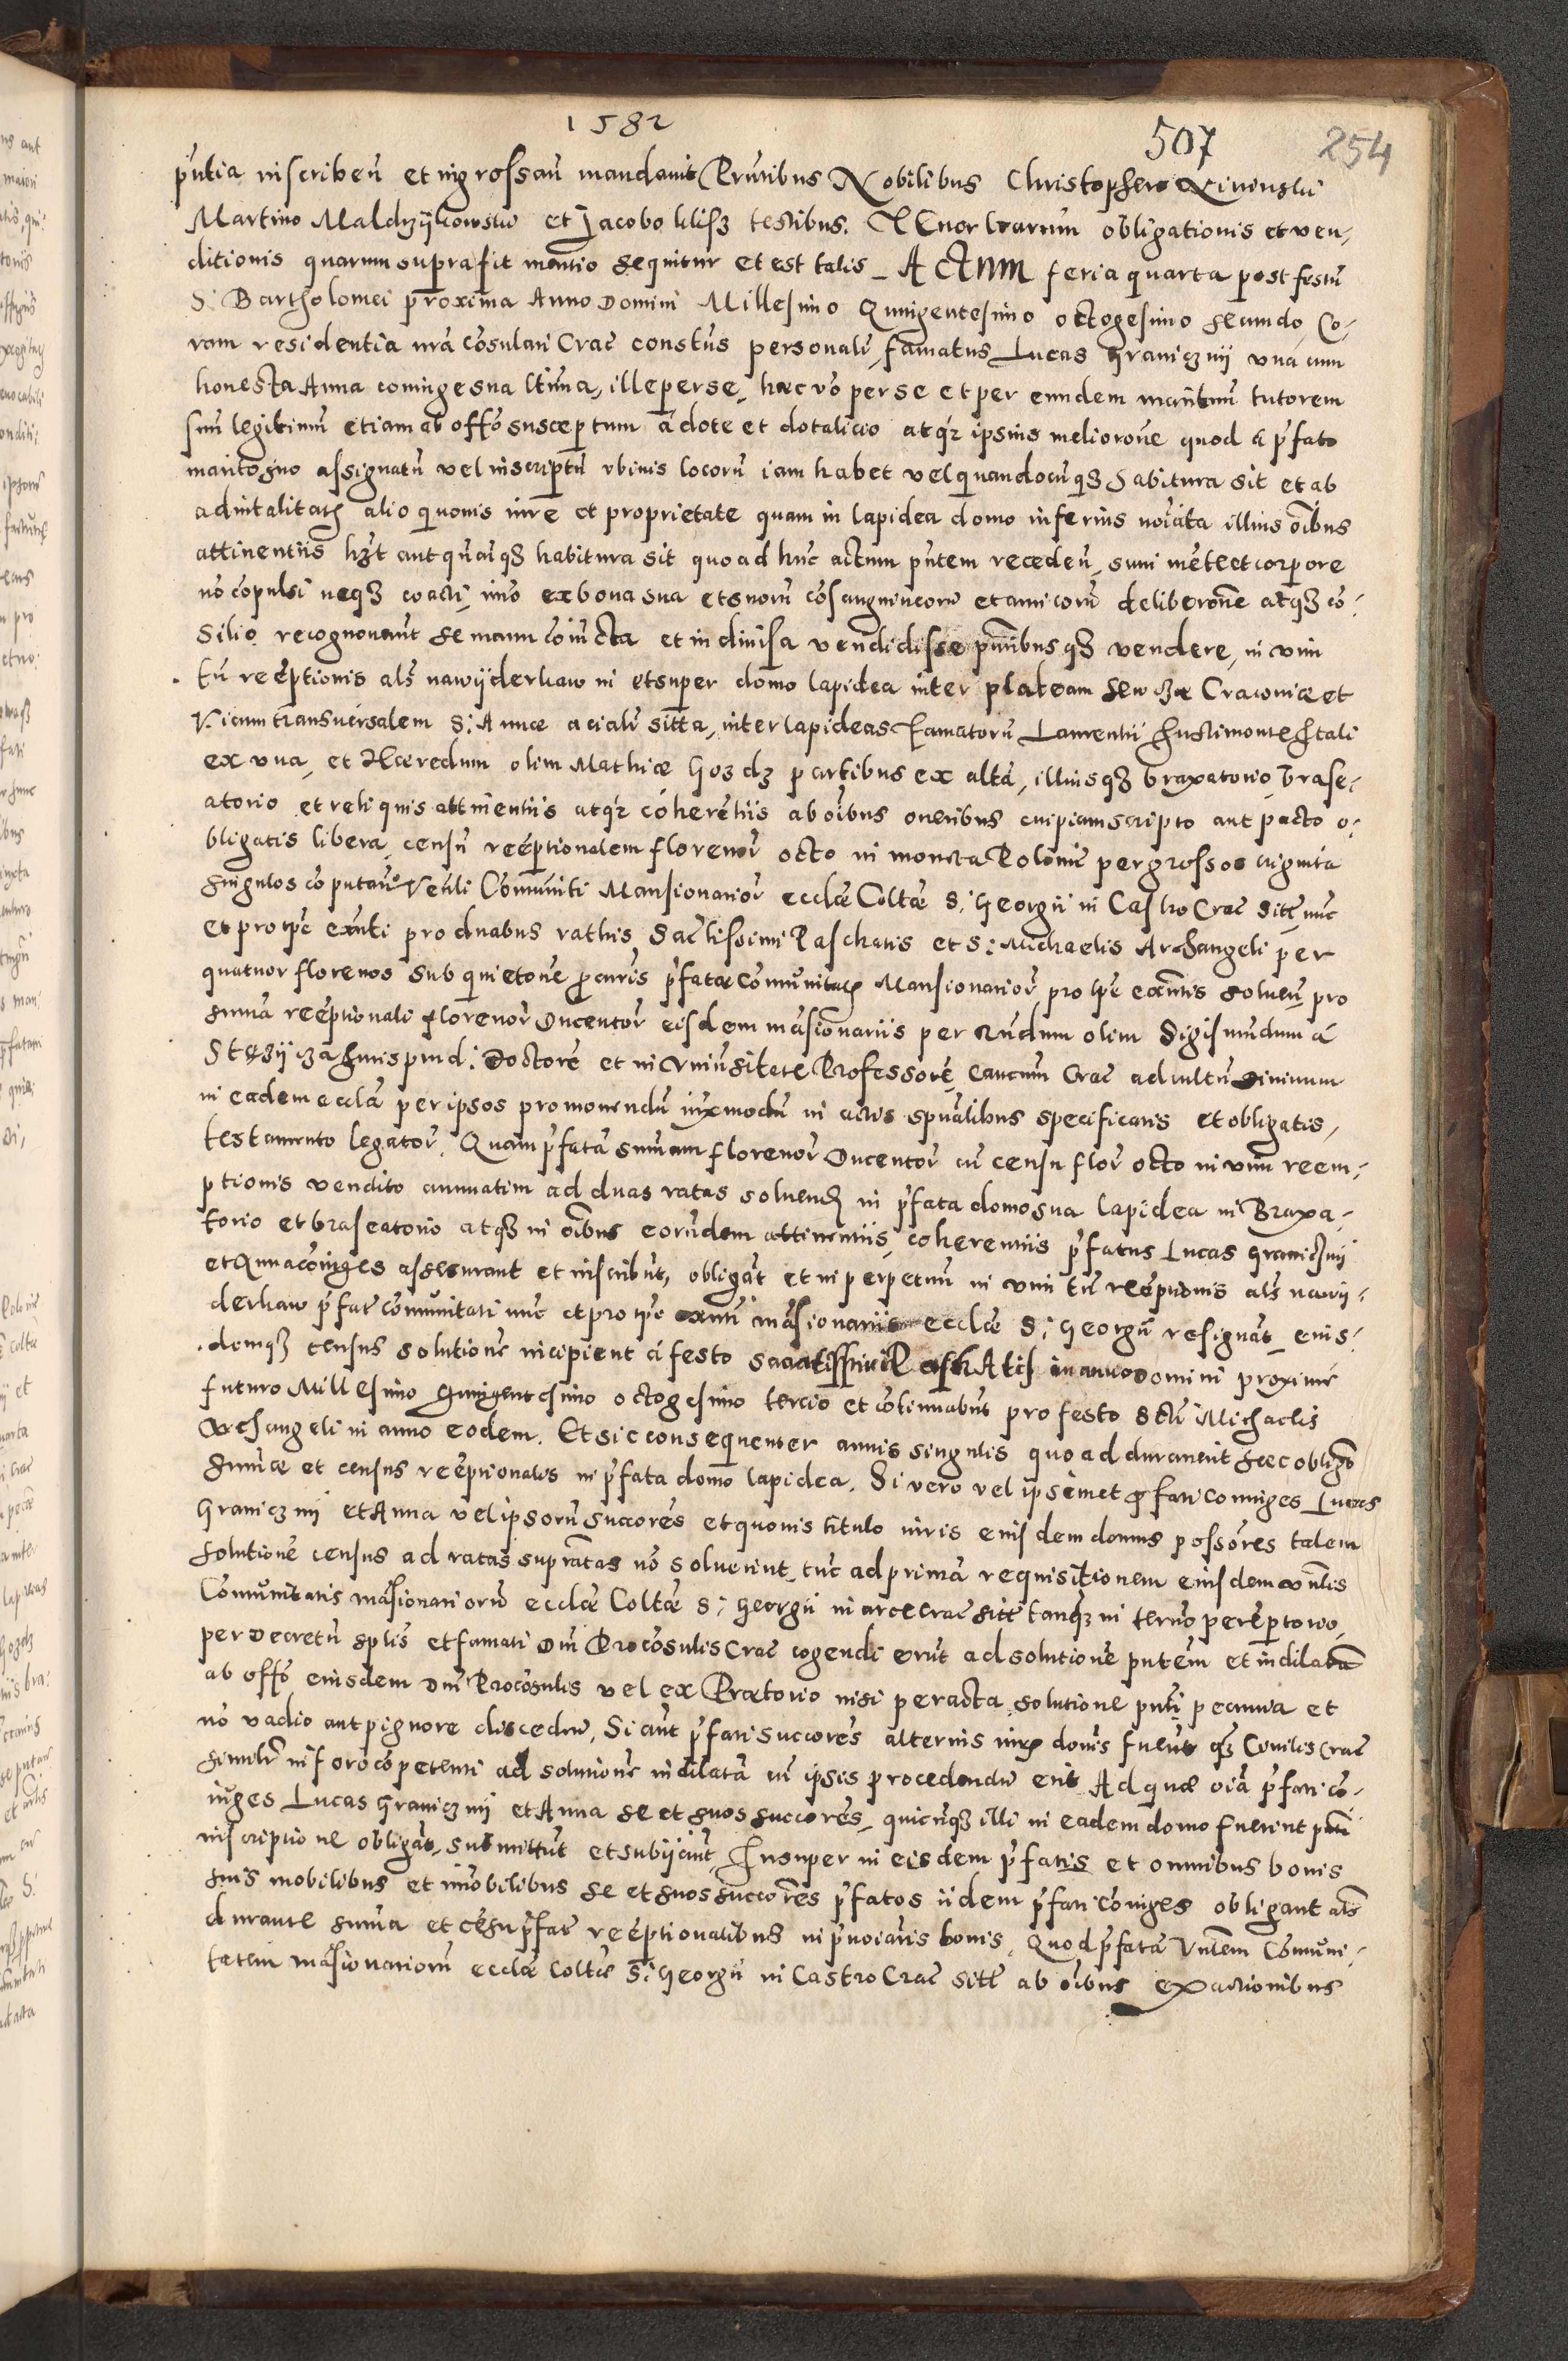 1582
507
254
pñtia inscribeñ et ingrossañ mandavit Prñtibus Nobilibus Christophero
Martino Maldrzÿkowski et Jacobo klisz testibus. TEnor lrarum obligationis et ven¬
ditionis quarum supra fit mentio sequitur et est talis _ ACTNM feria quarta post festũ
S. Bartholomei proxima Anno Domini Millesimo Quingentesimo octogesimo secundo, Co¬
ram residentia nrã cõsulari Crac constũs personalr, famatus Lucas Graniczny una cum
honesta Anna coniuge sua ltima, ille per se, haec vo per se et per eundem maritum tutorem
suũ legitimũ etiam ab offõ susceptum a dote et dotalicio atqz ipsius meliorone quod a pfato
marito suo assignatũ vel inscriptũ ubivis locorũ iam habet vel quandocũqz habitura sit et ab
advitalitate alio quovis iure et proprietate quam in lapidea domo inferius noiata illius oibus
attinentiis hẽt aut qũcũqz habitura sit quo ad hũc actum pñtem recedeñ, sani mẽte et corpore
nõ cõpulsi neqz coacti, imo ex bona sua et suorũ cõsanguineorũ et amicorũ deliberone atqz cõ¬
silio recognoverũt se manu cõiũcta et indivisa vendidisse pñtibusqz vendere, in vim
tñ reẽptionis als na wÿderkaw in et super domo lapidea inter plateam Sewczá Cracoviæ et
vicum transversalem S: Annæ aciali sitta, inter lapideas Famatorũ Laurentii
ex una, et Hæredum olim Mathiæ Gozdz partibus ex alta, illiusqz braxatorio, brase¬
atorio et reliquis attinentiis atqz cõherẽtiis ab oibus oneribus cuipiam scripto aut pacto o¬
bligatis libera, censũ reẽptionalem florenor octo in moneta Polonie per grossos triginta
singulos cõputañ Venli Cõmuniti Mansionarior ecclæ Coltæ S. Georgii in Castro Crac sittæ nũc
et pro tpe exñti pro duabus rathis Sactissimi Paschatis et S: Michaelis Archangeli per
quatuor florenos sub quietone pcuris pfatæ Cõmunitatis Mansionarior pro tpe exñtis solveñ pro
suma reẽptionali florenor Ducentor eisdem mãsionariis per Rñdum olim Sigismundum á
Stęzÿcza Jurisprud: Doctorẽ et in Universitate Professorẽ, Cancum Crac ad cultũ divinum
in eadem eccla per ipsos promovendũ iuxmodũ in actis spualibus specificatis et obligatis,
testamento legator. Quam pfatã sumam florenor Ducentor cũ censu flor octo in vim reem¬
ptionis vendito annuatim ad duas ratas solvend in pfata domo sua lapidea in Braxa¬
torio et braseatorio atqz in oibus eorũdem attinentiis, coherentiis pfatus Lucas Graniczny
et Anna cõiuges assecurant et inscribũt, obligãt et in perpetuũ in vim tñ reẽptionis als na wÿ¬
derkaw pfatæ cõmunitati nũc et pro tpe exñti mãsionariis ecclæ S: Georgii resignãt, eius¬
demqz census solutionẽ incipient á festo sacratissimi PaschAtis in anno Domini proximè
futuro Millesimo quingentesimo octogesimo tercio et cõtinuabũt pro festo Scti Michaelis
Archangeli in anno eodem. Et sic consequenter annis singulis quo ad duraverit haec obligo
sumæ et census reẽptionalis in pfata domo lapidea. Si vero vel ipsimet pfati coniuges Lucas
Graniczny et Anna vel ipsorũ succores et quovis titulo iuris eiusdem domus possores talem
solutionẽ census ad ratas supratas nõ solverint, tũc ad primã requisitionem eiusdem vnlis
Cõmunitatis mãsionariorũ ecclæ Coltæ S: Georgii in arce Crac sittæ tanqz in termo perẽptorio,
per Decretũ splis et famati Dni Procõsulis Crac cogendi erũt ad solutionẽ pñtem et indilatã
ab offõ eiusdem Dni Procõsulis vel ex Prætorio nisi peracta solutione pñti pecunia et
nõ vadio aut pignore discedeñ, Si aũt pfati succores alterius iuris domus fuerĩt qz Civilis Crac
similr in foro cõpetenti ad solutionẽ indilatã cũ ipsis procedendũ erit Ad quæ oiã pfati cõ¬
iuges Lucas Graniczny et Anna se et suos succores, quicũqz illi in eadem domo fuerint pñti
inscriptione obligãt, submittũt et subijciũt, Insuper in eisdem pfatis et omnibus bonis
suis mobilibus et imobilibus se et suos succores pfatos iidem pfati cõiuges obligant als
durante suma et cẽsu pfatæ reẽptionalibus in pnoiatis bonis, Quod pfatã Vnlem Cõmuni¬
tatem mãsionariorũ ecclæ Coltæ S: Georgii in Castro Crac sittæ ab oibus exactionibus